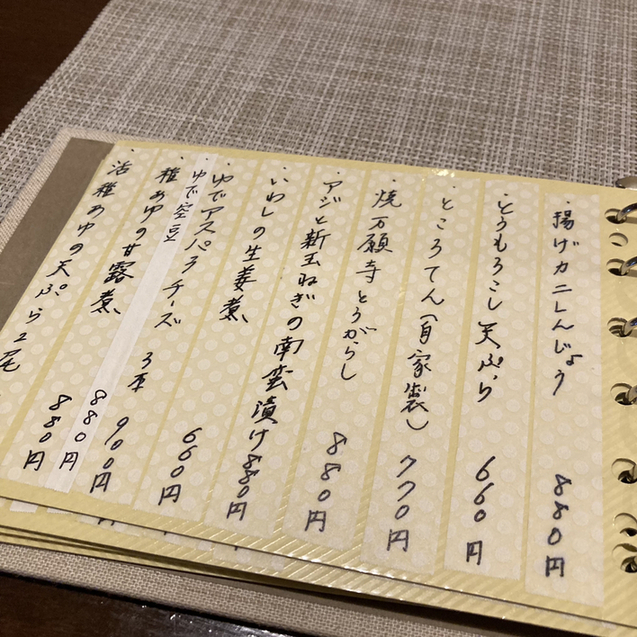 ・揚げカニしんじょう 880円
・とうもろこし天ぷら 660円
・ところてん(自家製) 770円
・焼万願寺とうがらし 880円
・アジと新玉ねぎの南蛮漬け 880円
・いわしの生姜煮 660円
・ゆでアスパラチーズ 3本 900円
・ゆで空豆 880円
・稚あゆの甘露煮 880円
・活稚あゆの天ぷら2尾